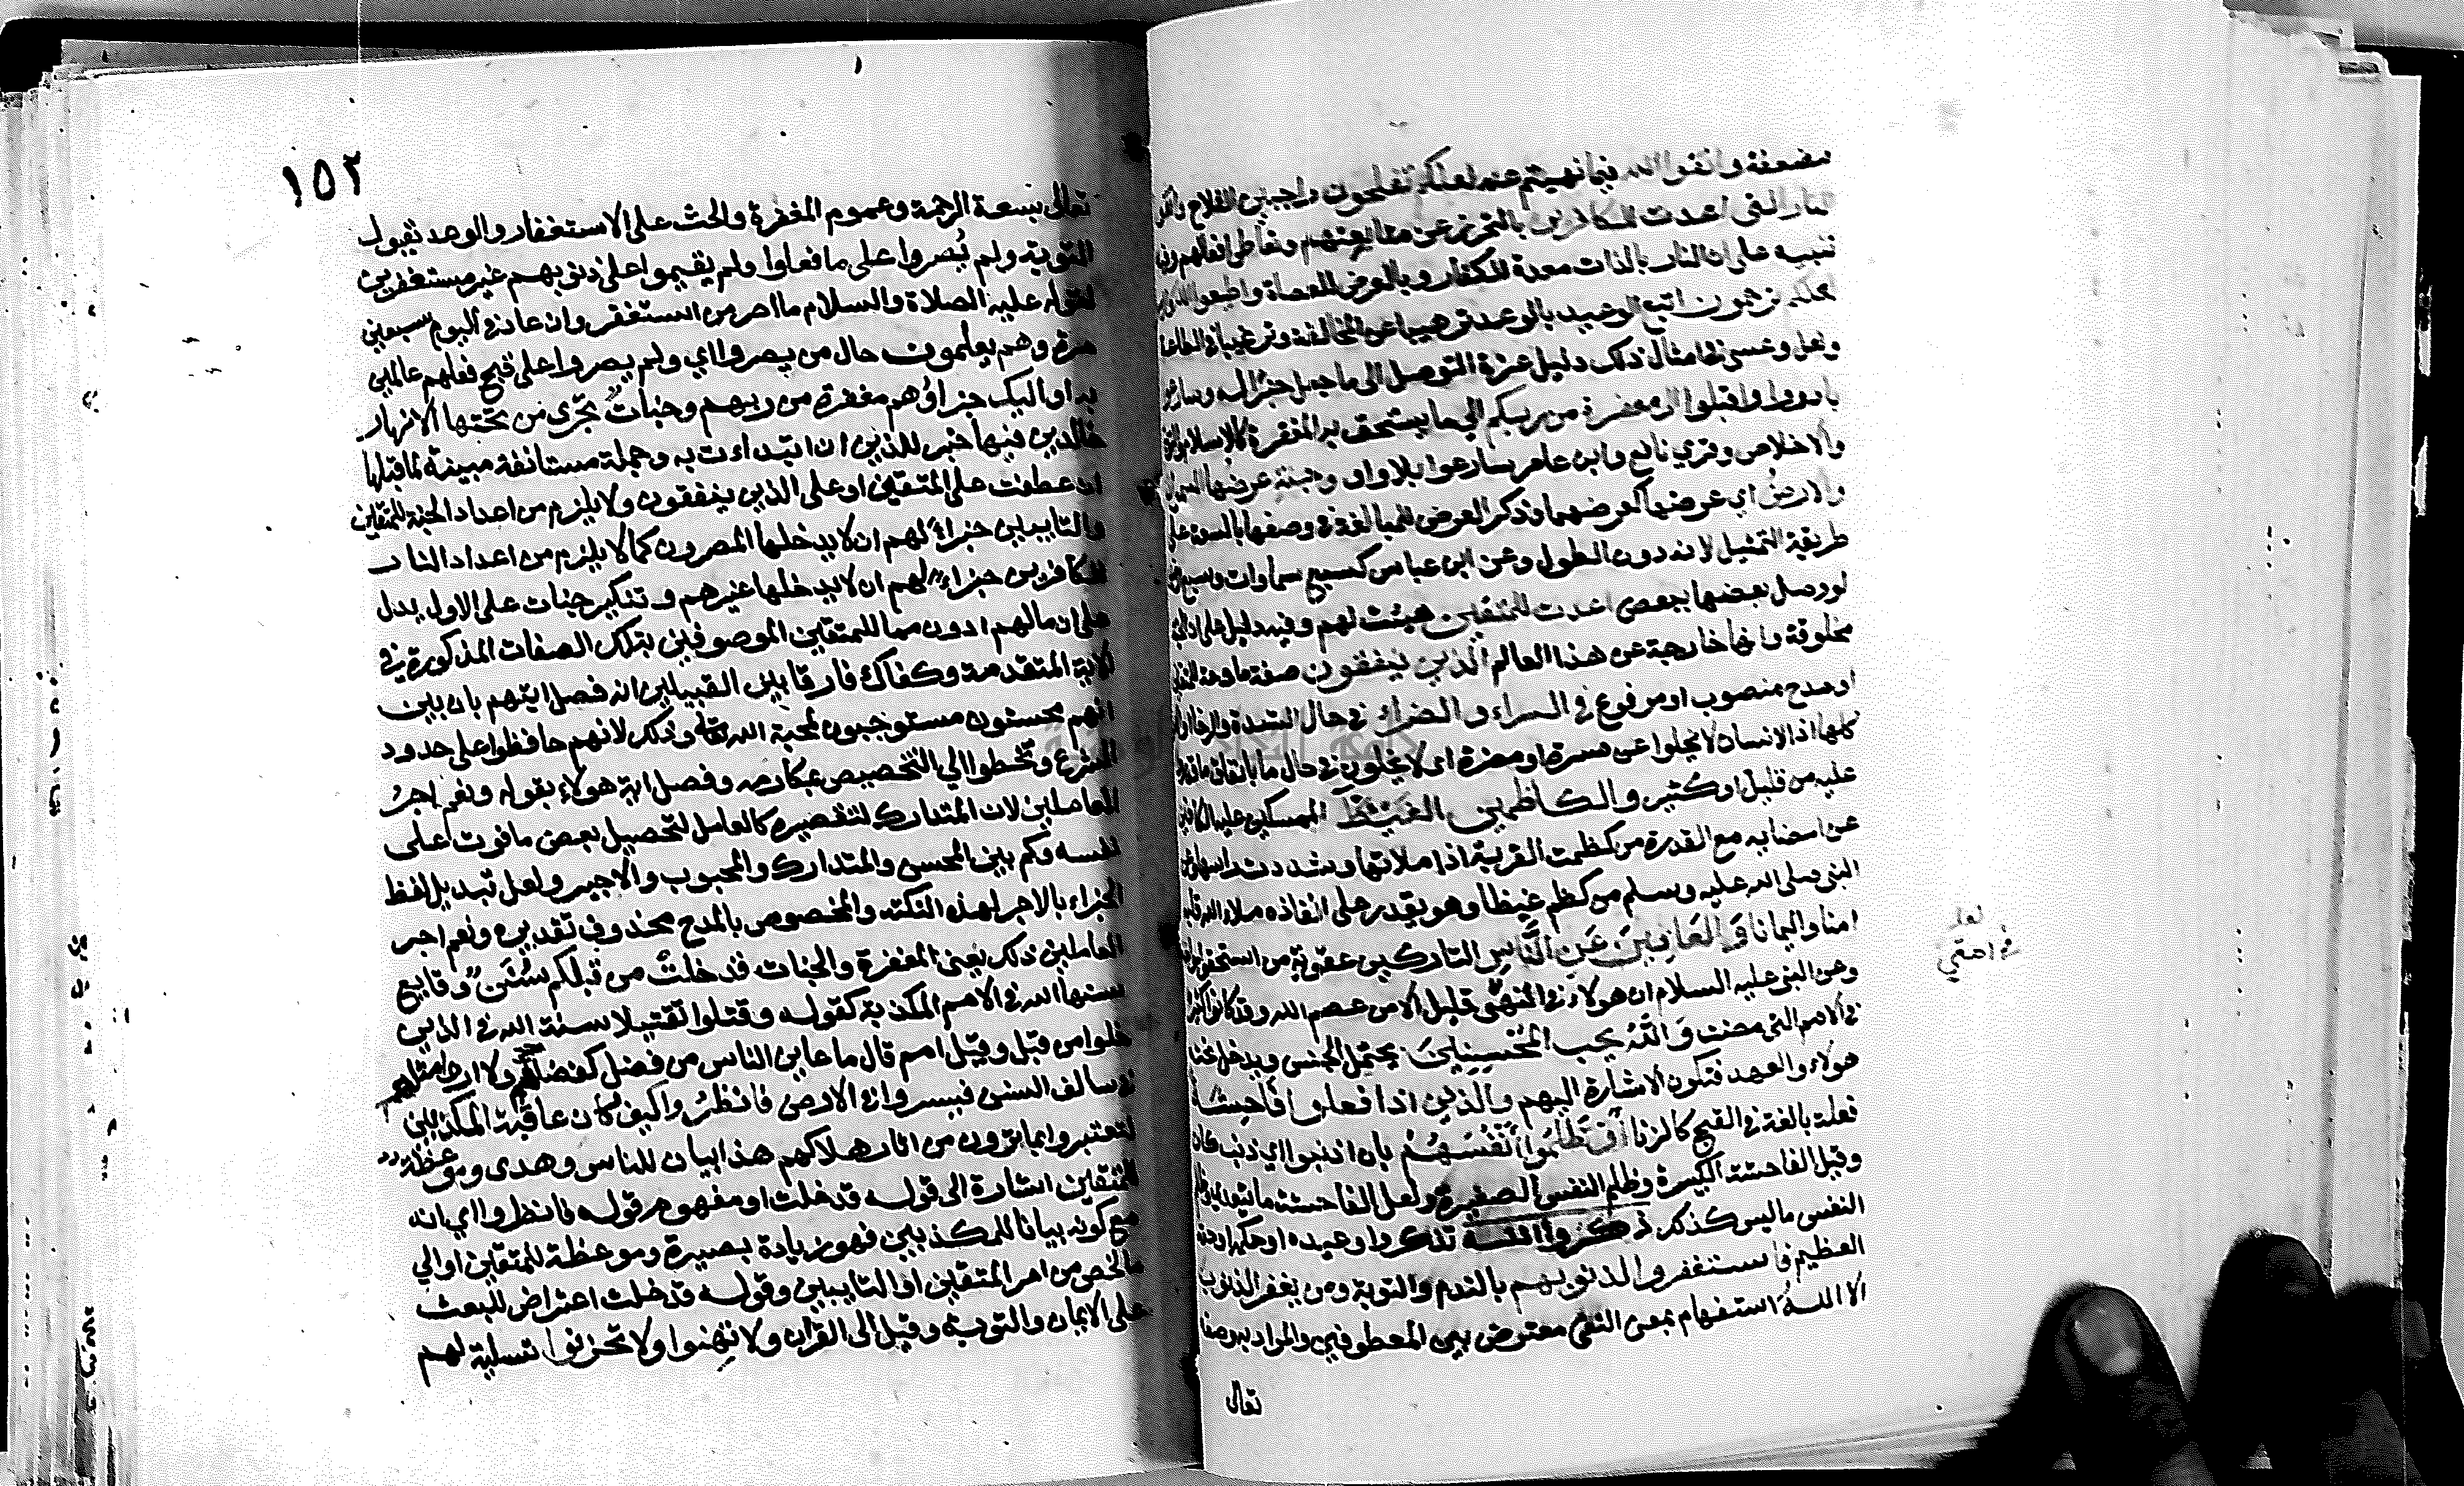 مضعفة واتقوا الله فيما نهيتم عنه لعلكم تفلحون راجين الفلاح واتقوا
النار التي اعدت للكافرين بالتحرز عن متابعتهم وتعاطي افعالهم وفيه
تنبيه على ان النار بالذات معدة للكفار وبالعرض للعصاة واطيعوا الله والرسول
لعلكم ترحمون اتبع الوعيد بالوعد ترهيبا عن المخالفة وترغيبا في الطاعة
ولعل وعسى في امثال ذلك دليل عزة التوصل الى ما جعل خبرا له وسارعوا
بادروا واقبلوا الى مغفرة من ربكم الى ما يستحق به المغفرة كالاسلام والتوبة
والاخلاص وقرئ نافع وابن عامر سارعوا بلا واو وجنة عرضها السموات
والارض اي عرضها كعرضهما وذكر العرض للمبالغة في وصفها بالسعة على
طريقة التمثيل لانه دون الطول وعن ابن عباس كسبع سماوات وسبع ارضين
لو وصل بعضها ببعض اعدت للمتقين هيئت لهم وفيه دليل على ان الجنة
مخلوقة وانها خارجة عن هذا العالم الذين ينفقون صفة مادحة للمتقين
او مدح منصوب او مرفوع في السراء والضراء في حال الشدة والرخاء او الاحوال
كلها اذ الانسان لا يخلوا عن مسرة او مضرة اي لا يخلون في حال ما بانفاق ما قدروا
عليه من قليل او كثير والكاظمين الغيظ الممسكين عليه الكافين
عن امضايه مع القدرة من كظمت القربة اذا ملاتها وشددت راسها وعن
النبي صلى الله عليه وسلم من كظم غيظا وهو يقدر على انفاذه ملاء الله قلبه
امنا وايمانا والعافين عن الناس التاركين عقوبة من استحقوا مؤاخذته
وعن النبي عليه السلام ان هولاء في امتي قليل الا من عصم الله وقد كانوا كثيرا
في الامم التي مضت والله يحب المحسنين يحتمل الجنس ويدخل تحته
هولاء والعهد فتكون الاشارة اليهم والذين اذا فعلوا فاحشة
فعلة بالغة في القبح كالزنا او ظلموا انفسهم بان اذنبوا اي ذنب كان
وقيل الفاحشة الكبيرة وظلم النفس الصغيرة ولعل الفاحشة ما يتعدى وظلم
النفس ما ليس كذلك ذكروا الله تذكروا وعيده او حكمه او حقه
العظيم فاستغفروا لذنوبهم بالندم والتوبة ومن يغفر الذنوب
الا الله استفهام بمعنى النفي معترض بين المعطوفين والمراد به وصفه
تعالى
لعله
في امتي
١٥٢
تعالى بسعة الرحمة وعموم المغفرة والحث على الاستغفار والوعد بقبول
التوبة ولم يصروا على ما فعلوا ولم يقيموا على ذنوبهم غير مستغفرين
لقوله عليه الصلاة والسلام ما اصر من استغفر وان عاد في اليوم سبعين
مرة وهم يعلمون حال من يصروا اي ولم يصروا على قبح فعلهم عالمين
به اوليك جزاؤهم مغفرة من ربهم وجنات تجري من تحتها الانهار
خالدين فيها خبر للذين ان ابتداءت به وجملة مستانفة مبينة لما قبلها
ان عطفت على المتقين او على الذين ينفقون ولا يلزم من اعداد الجنة للمتقين
والتايبين جزاء لهم ان لا يدخلها المصرون كما لا يلزم من اعداد النار
للكافرين جزاء لهم ان لا يدخلها غيرهم وتنكير جنات على الاول يدل
على ان ما لهم ادون مما للمتقين الموصوفين بتلك الصفات المذكورة في
الاية المتقدمة وكفاك فارقا بين القبيلين انه فصل ايتهم بان بين
انهم محسنون مستوجبون لمحبة الله تعالى وذلك لانهم حافظوا على حدود
الشرع وتخطوا الي التخصيص بمكارمه وفصل اية هولاء بقوله ونعم اجر
العاملين لان المتدارك لتقصيره كالعامل لتحصيل بعض ما فوت على
نفسه وكم بين المحسن والمتدارك والمحبوب والاجير ولعل تبديل لفظ
الجزاء بالاجر لهذه النكتة والمخصوص بالمدح محذوف تقديره ونعم اجر
العاملين ذلك يعني المغفرة والجنات قد خلت من قبلكم سنن وقايع
سنها الله في الامم المكذبة كقوله وقتلوا تقتيلا سنة الله في الذين
خلوا من قبل وقيل امم قال ما عاين الناس من فضل كفضلكم ولا اري مثلهم
في سالف السنن فسيروا في الارض فانظروا كيف كان عاقبة المكذبين
لتعتبروا بما ترون من اثار هلاكهم هذا بيان للناس وهدى وموعظة
للمتقين اشارة الى قوله قد خلت او مفهوم قوله فانظروا اي انه
مع كونه بيانا للمكذبين فهو زيادة بصيرة وموعظة للمتقين او الي
ما لخص من امر المتقين او التايبين وقوله قد خلت اعتراض للبعث
على الايمان والتوبة وقيل الى القران ولا تهنوا ولا تحزنوا تسلية لهم